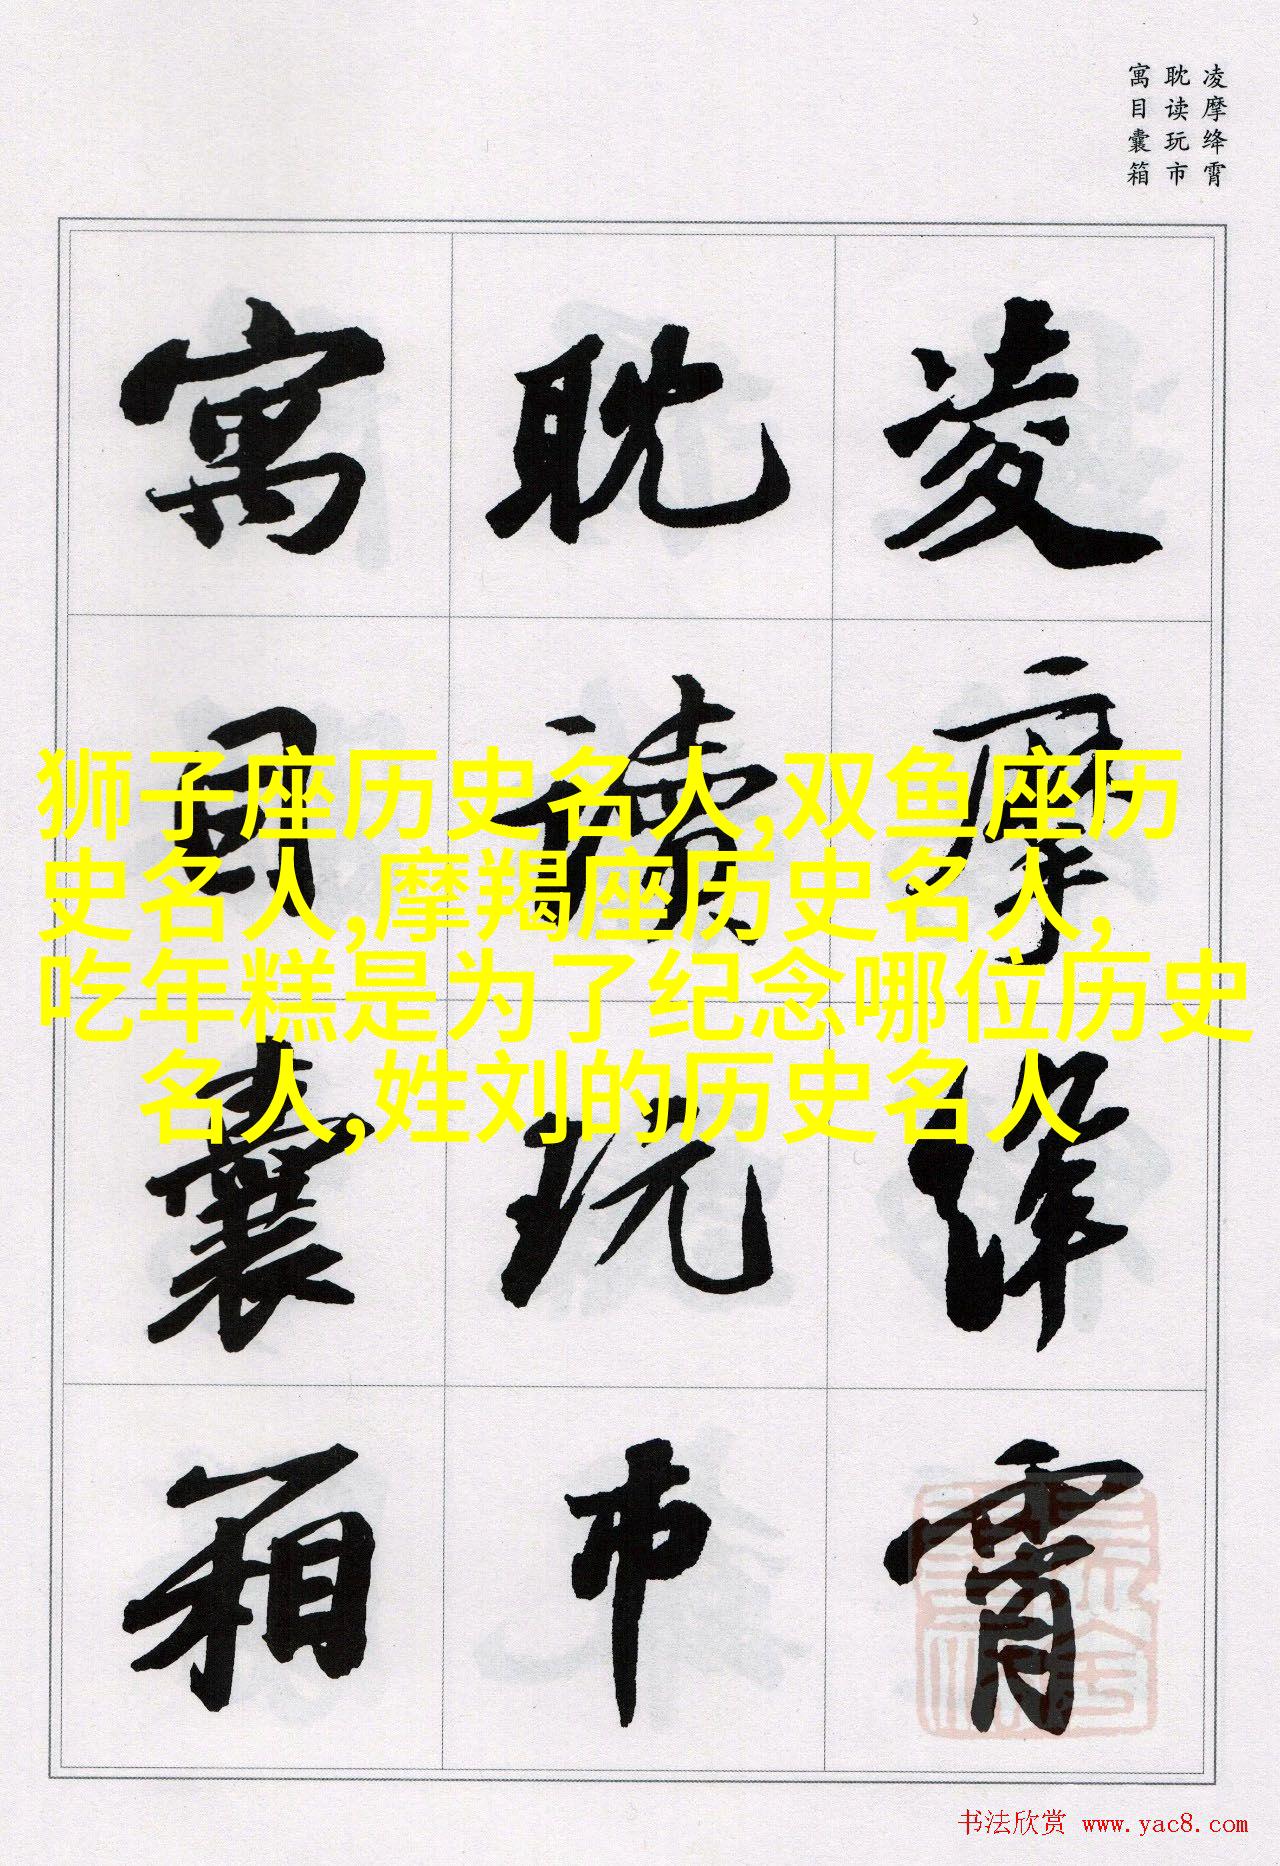 凌摩绛霄
耽读玩市
寓目囊箱
凌摩绛霄
耽读玩市
寓目囊箱
狮子座历史名人,双鱼座历
史名人,摩羯座历史名人,
吃年糕是为了纪念哪位历史
名人,姓刘的历史名人
书法欣赏 www.yac8.com